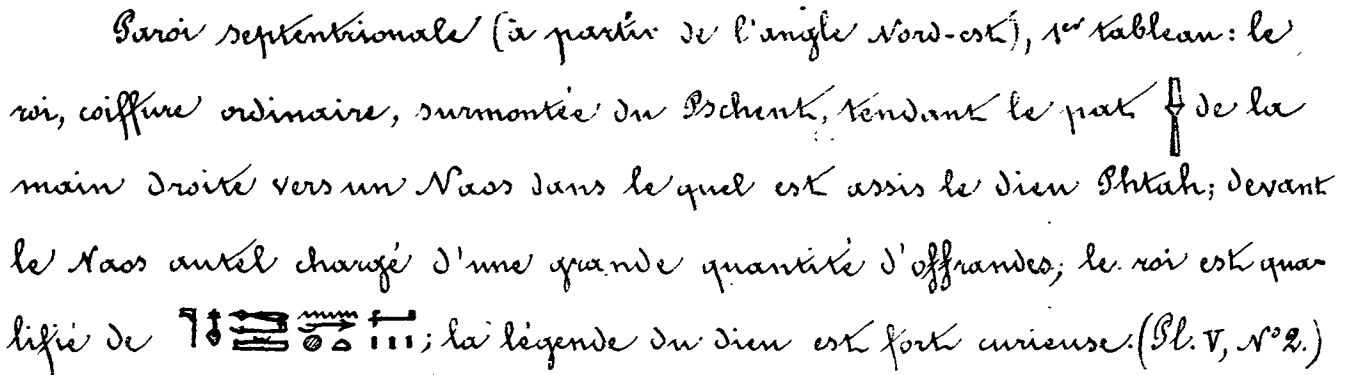 Paroi septentrionale (à partir de l'angle Nord-est), 1er tableau: le
roi, coiffure ordinaire, surmontée du Pschent, tendant le pat de la
main droite vers un Naos dans le quel est assis le dieu Phtah; devant
le Naos autel chargé d'une grande quantité d'offrandes; le roi est qua-
lifié de ; la légende du dieu est fort curieuse. (Pl. V, N° 2.)